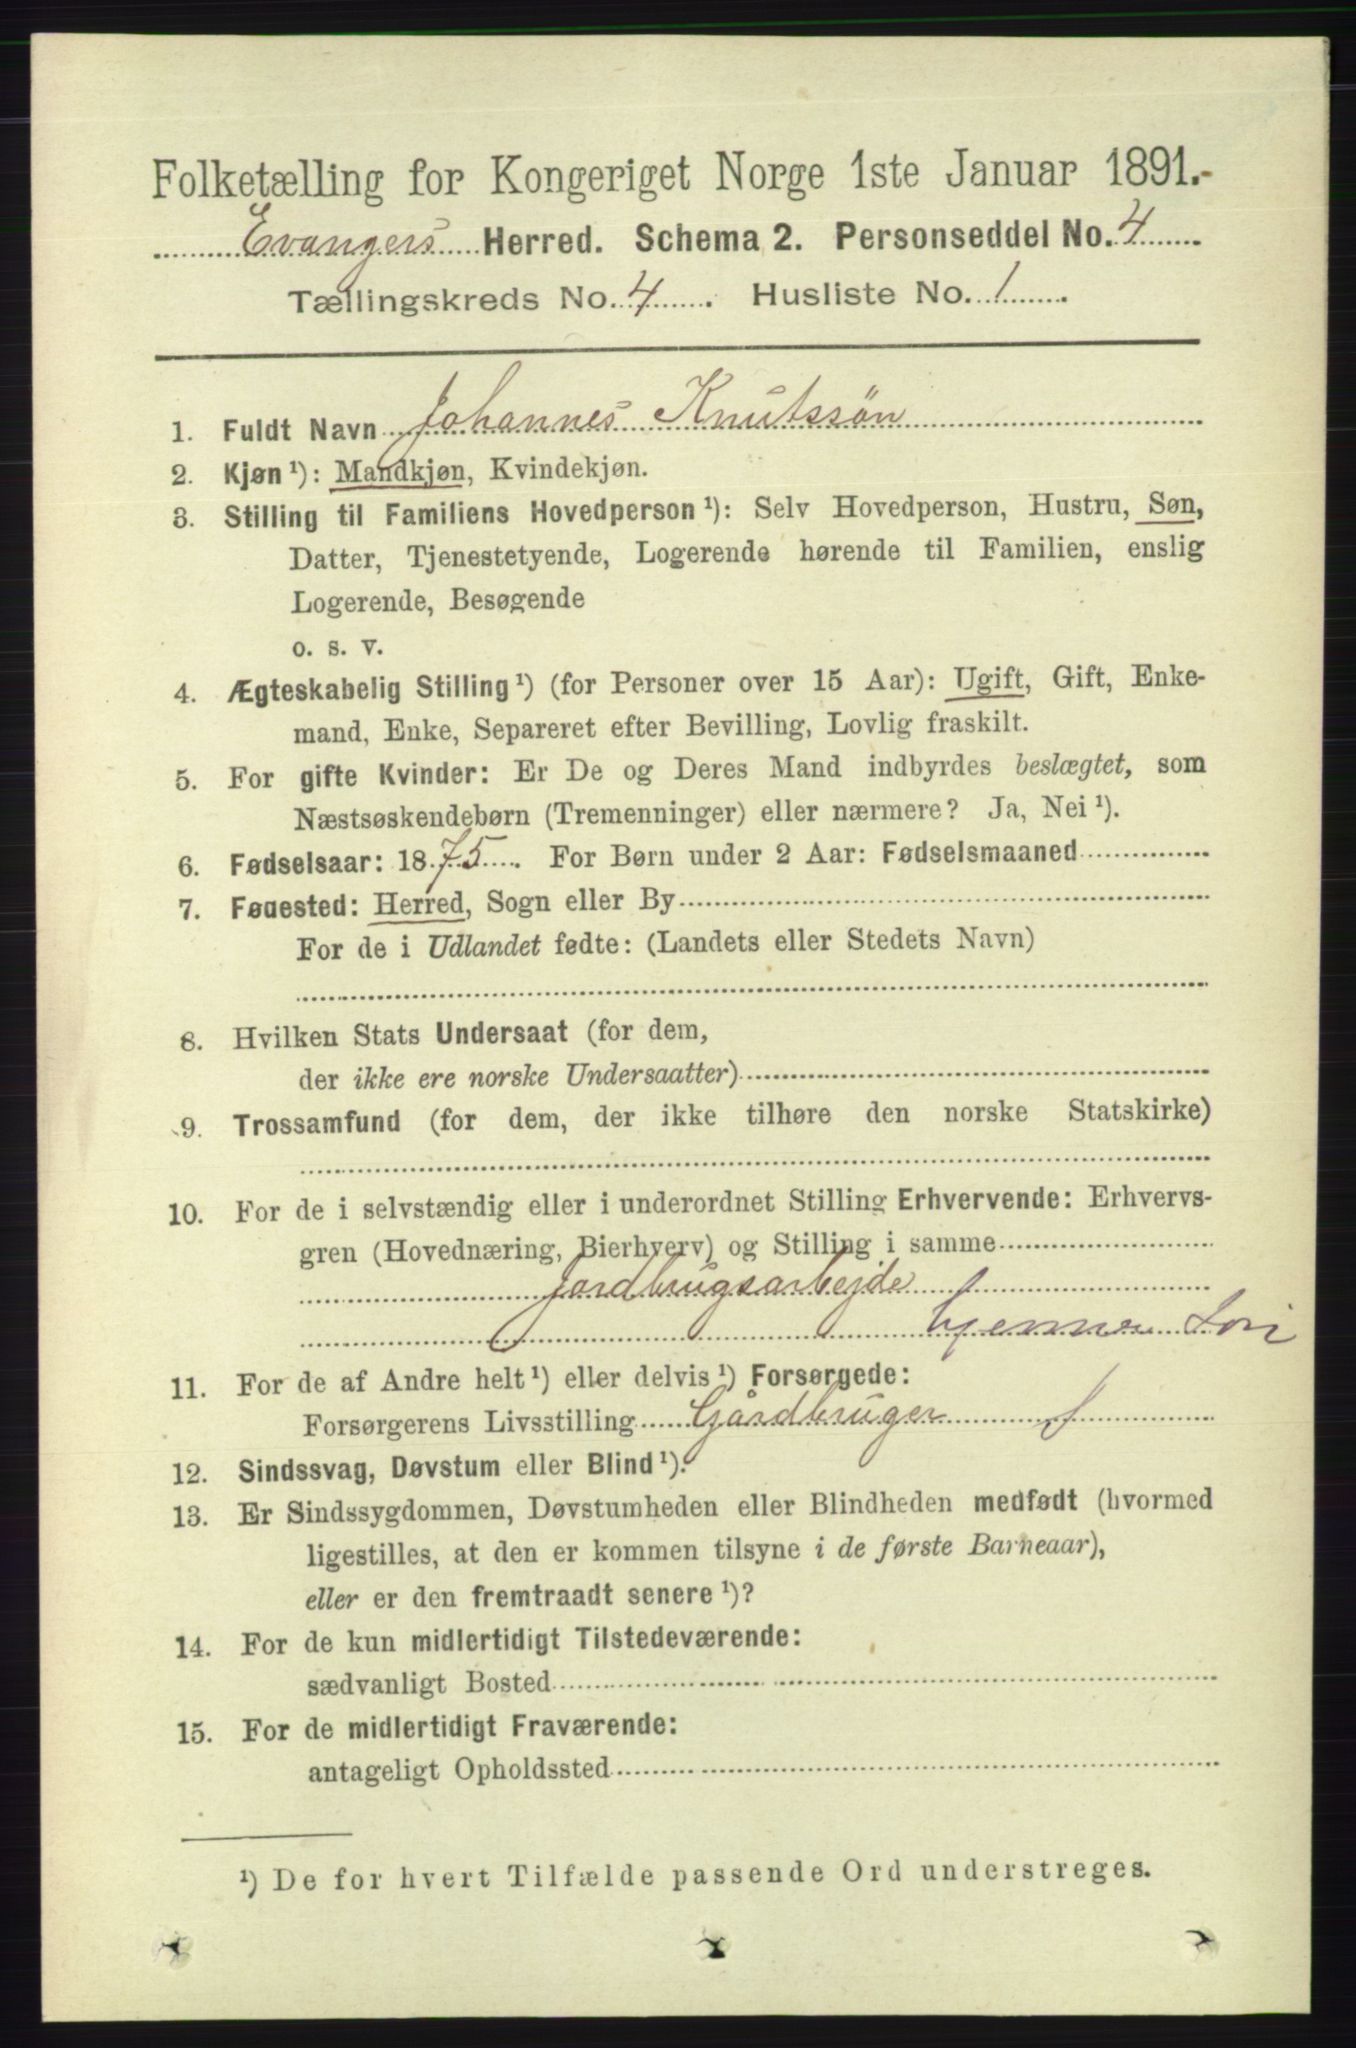 Folketælling for Kongeriget Norge 1ste Januar 1891.
Evangers Herred. Schema 2. Personseddel No. 4
Tællingskreds No. 4. Husliste No. 1.
1. Fuldt Navn Johannes Knutssøn
2. Kjøn ¹): Mandkjøn, Kvindekjøn.
3. Stilling til Familiens Hovedperson ¹): Selv Hovedperson, Hustru, Søn,
Datter, Tjenestetyende, Logerende hørende til Familien, enslig
Logerende, Besøgende
o. s. v.
4. Ægteskabelig Stilling ¹) (for Personer over 15 Aar): Ugift, Gift, Enke-
mand, Enke, Separeret efter Bevilling, Lovlig fraskilt.
5. For gifte Kvinder: Er De og Deres Mand indbyrdes beslægtet, som
Næstsøskendebørn (Tremenninger) eller nærmere? Ja, Nei ¹).
6. Fødselsaar: 1875. For Børn under 2 Aar: Fødselsmaaned
7. Føuested: Herred, Sogn eller By
For de i Udlandet fødte: (Landets eller Stedets Navn)
8. Hvilken Stats Undersaat (for dem,
der ikke ere norske Undersaatter)
9. Trossamfund (for dem, der ikke tilhøre den norske Statskirke)
10. For de i selvstændig eller i underordnet Stilling Erhvervende: Erhvervs-
gren (Hovednæring, Bierhverv) og Stilling i samme
Jordbrugsarbejde
hjemme
11. For de af Andre helt ¹) eller delvis ¹) Forsørgede:
Forsørgerens Livsstilling Gårdbruger
12. Sindssvag, Døvstum eller Blind ¹).
13. Er Sindssygdommen, Døvstumheden eller Blindheden medfødt (hvormed
ligestilles, at den er kommen tilsyne i de første Barneaar),
eller er den fremtraadt senere ¹)?
14. For de kun midlertidigt Tilstedeværende:
sædvanligt Bosted
15. For de midlertidigt Fraværende:
antageligt Opholdssted
¹) De for hvert Tilfælde passende Ord understreges.